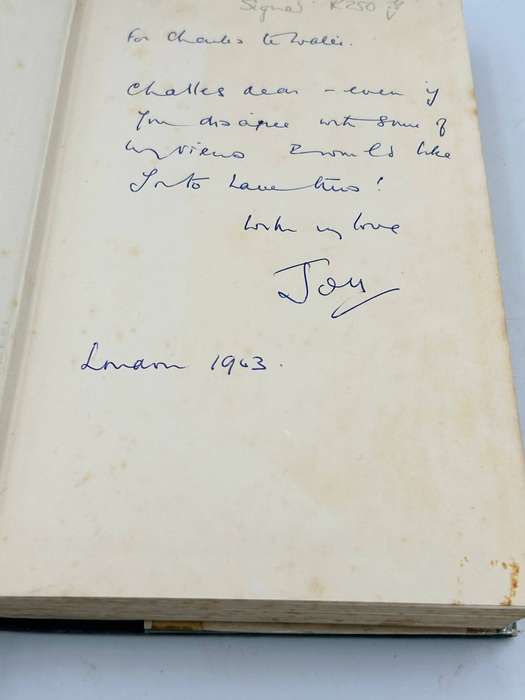 Signed R250
For Charles
Charles dear - even if
you disagree with some of
my views I would like
you to have this!
With my love
Joy
London 1963.